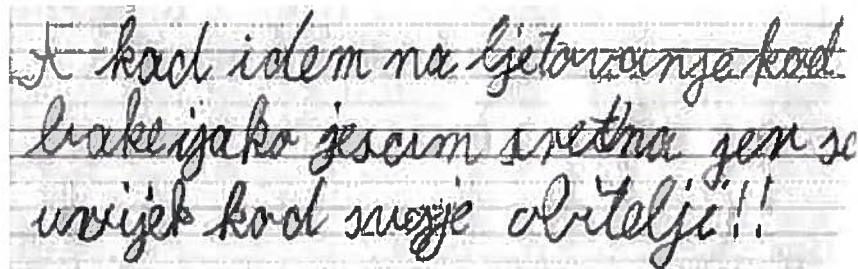 A kad idem na ljetovanje kod
bake ijako jesam sretna jer sa
uvijek kod svoje obitelji!!